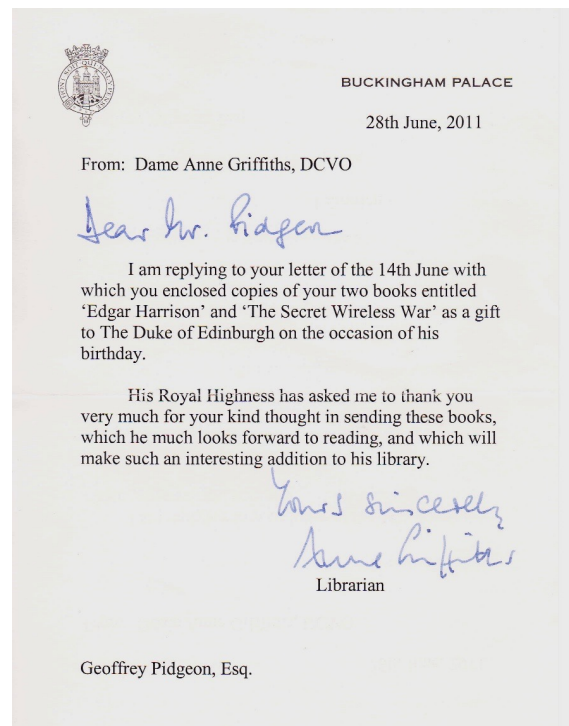 BUCKINGHAM PALACE
28th June, 2011
From: Dame Anne Griffiths, DCVO
Dear Mr. Pidgeon
I am replying to your letter of the 14th June with
which you enclosed copies of your two books entitled
‘Edgar Harrison’ and ‘The Secret Wireless War’ as a gift
to The Duke of Edinburgh on the occasion of his
birthday.
His Royal Highness has asked me to thank you
very much for your kind thought in sending these books,
which he much looks forward to reading, and which will
make such an interesting addition to his library.
Yours sincerely
Anne Griffiths
Librarian
Geoffrey Pidgeon, Esq.